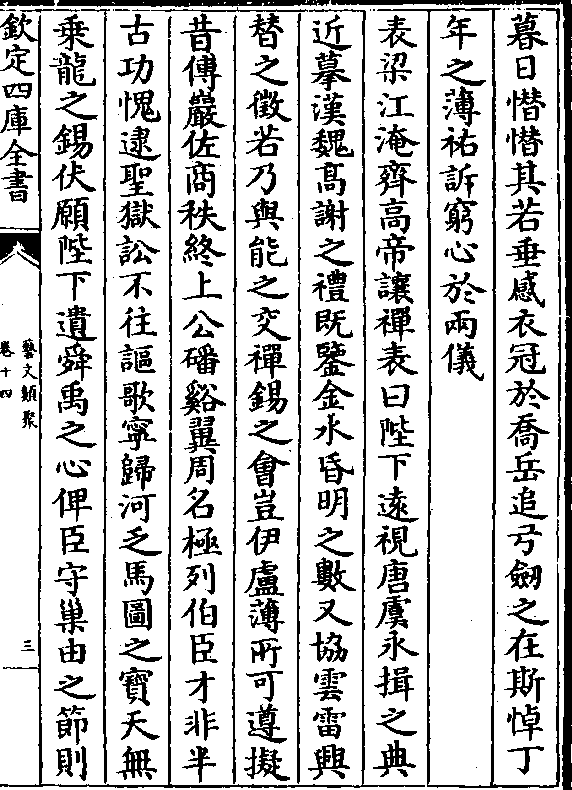 暮日㦧㦧其若垂感衣冠於喬岳追弓劒之在斯悼丁
年之薄祐訴窮心於兩儀
表梁江淹齊高帝讓禪表曰陛下遠視唐虞永揖之典
近摹漢魏髙謝之禮既鑒金水昏明之數又協雲雷興
替之徵若乃與能之交禪錫之會豈伊虛薄所可遵擬
昔傅巖佐商秩終上公磻谿翼周名極列伯臣才非半
古功愧逮聖獄訟不往謳歌寧歸河乏馬圖之寶天無
乘龍之錫伏願陛下遺舜禹之心俾臣守巢由之節則
欽定四庫全書
藝文類聚
卷十四
三